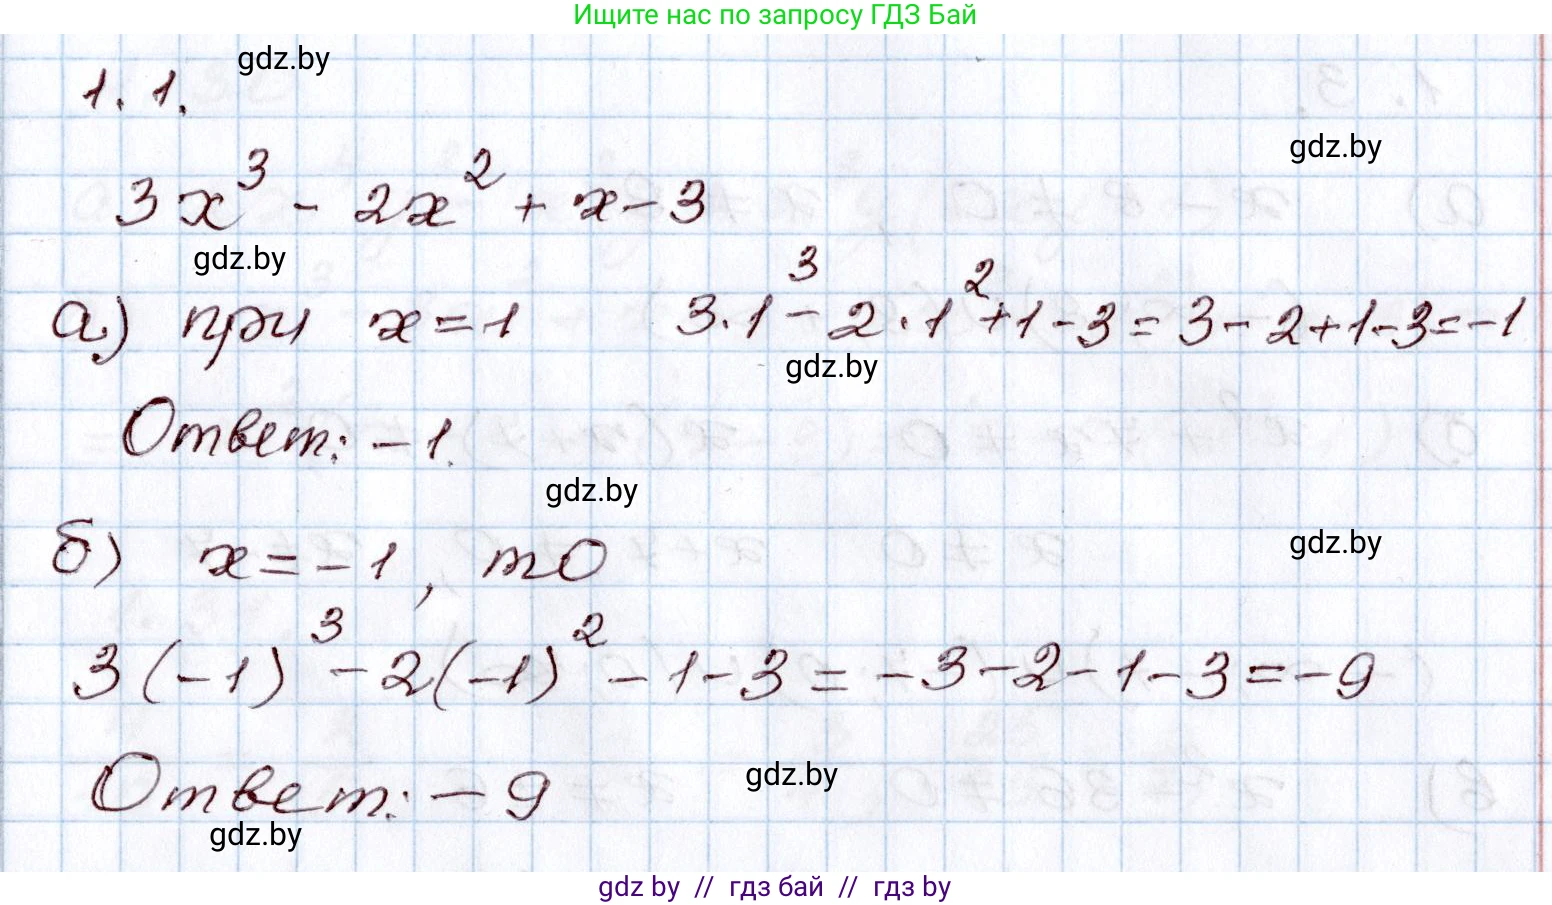 Ищите нас по запросу ГДЗ Бай
gdz.by
1.1.
gdz.by
3x³ - 2x² + x - 3
gdz.by
а) при x = 1 3·1³ - 2·1² + 1 - 3 = 3 - 2 + 1 - 3 = -1
gdz.by
Ответ: -1.
gdz.by
б) x = -1, то
gdz.by
3(-1)³ - 2(-1)² - 1 - 3 = -3 - 2 - 1 - 3 = -9
gdz.by
Ответ: -9
gdz.by
gdz by // гдз бай // гдз by